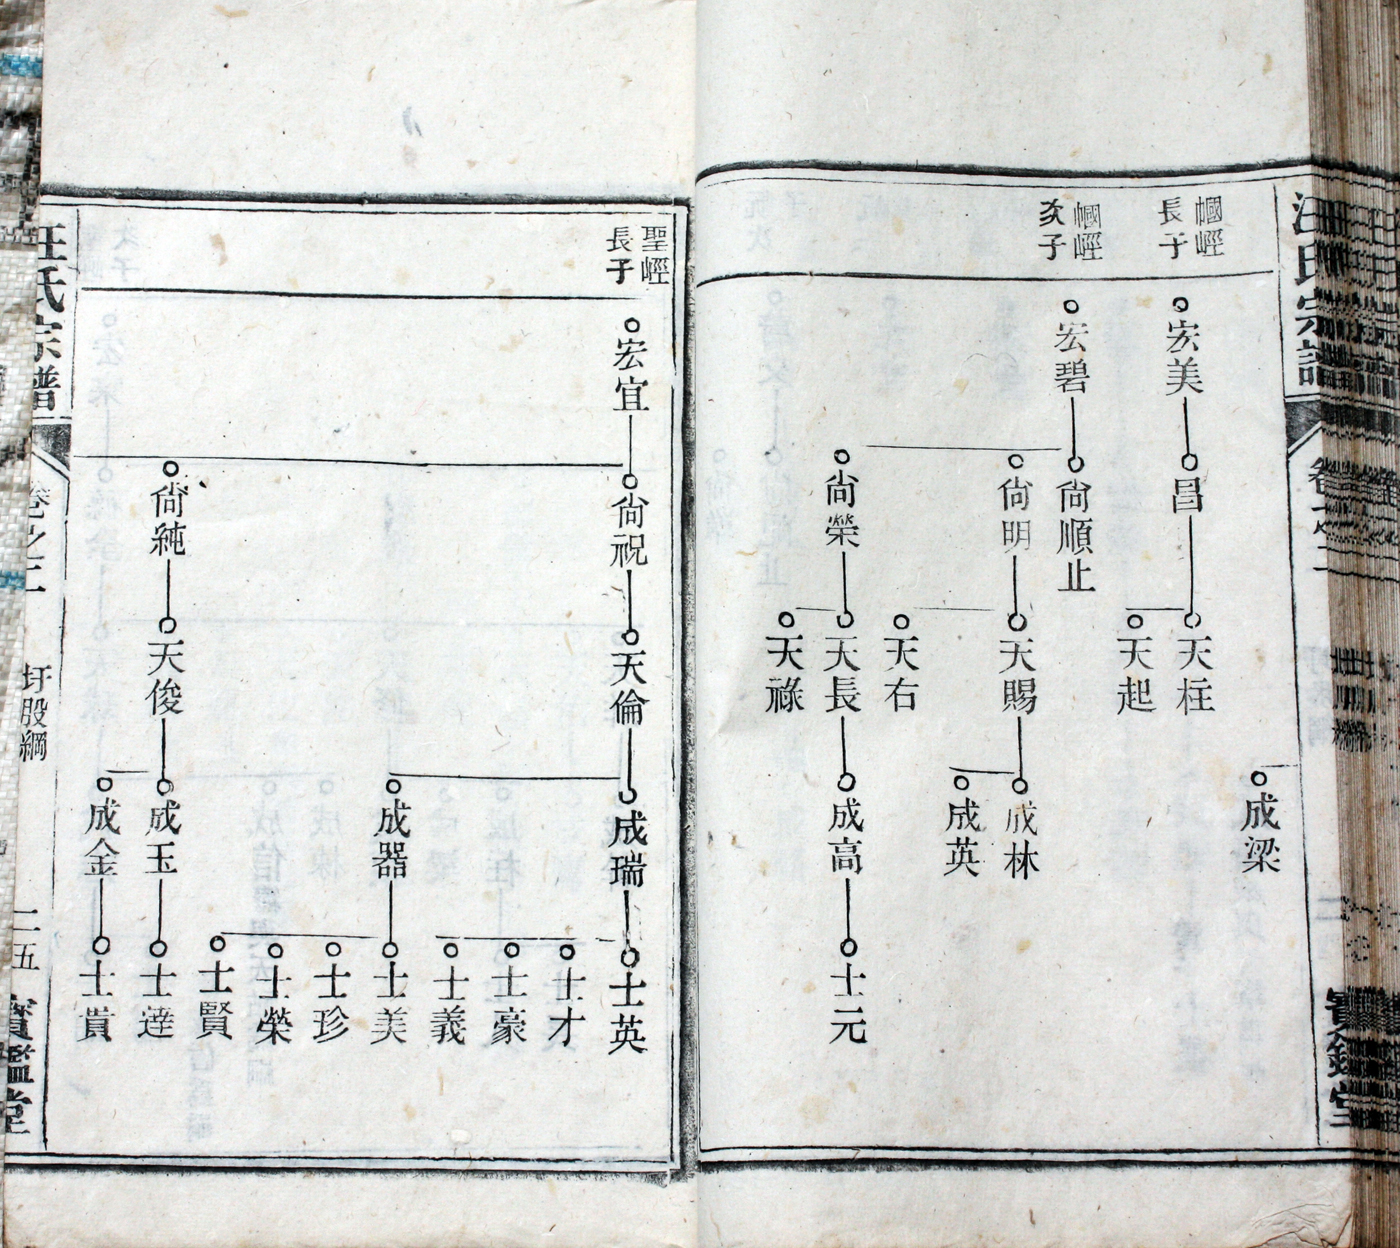 汪氏宗譜
卷之二
寶鑑堂
成梁
幗崿
長子
宏美
昌
天柱
天起
幗崿
次子
宏碧
尙順止
尙明
天賜
成林
成英
天右
尙榮
天長
成高
士元
天祿
聖崿
長子
宏宜
尙祝
天倫
成瑞
士英
士才
士豪
士義
成器
士美
士珍
士榮
士賢
尙純
天俊
成玉
士達
成金
士貴
汪氏宗譜
卷之二
圩股綱
二五
寶鑑堂